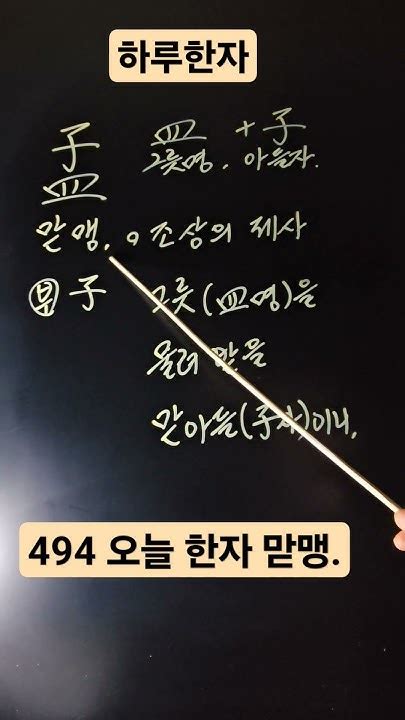 하루한자
子 皿 + 子
皿 그릇명. 아들자.
맏 맹. 조상의 제사
부 子 그릇(皿명)을
올려 맡을
맏아들(子자)이니,
494 오늘 한자 맏맹.